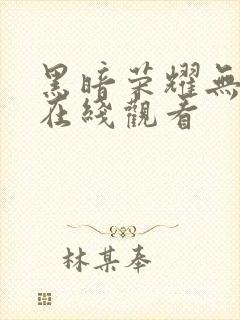 黑暗荣耀無
在綫觀看
林某奉